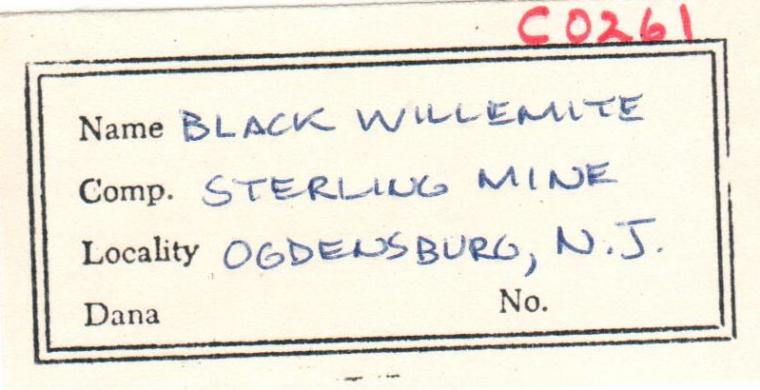 C0261
Name BLACK WILLEMITE
Comp. STERLING MINE
Locality OGDENSBURG, N.J.
Dana No.